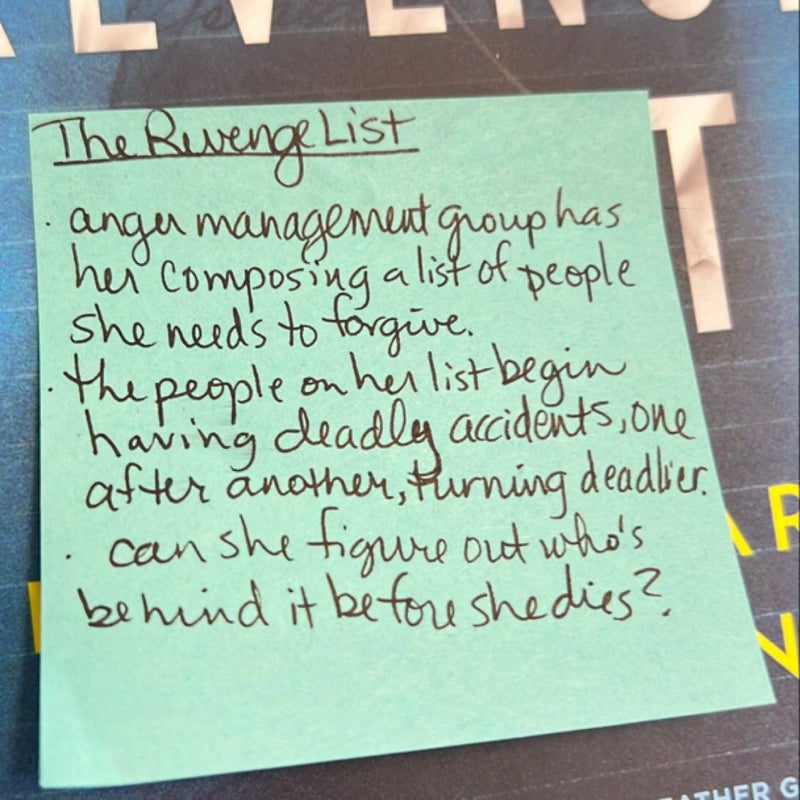 REVENGE
T
The Revenge List
· anger management group has
her composing a list of people
she needs to forgive.
· the people on her list begin
having deadly accidents, one
after another, turning deadlier.
· can she figure out who's
behind it before she dies?
AR
N
EATHER G